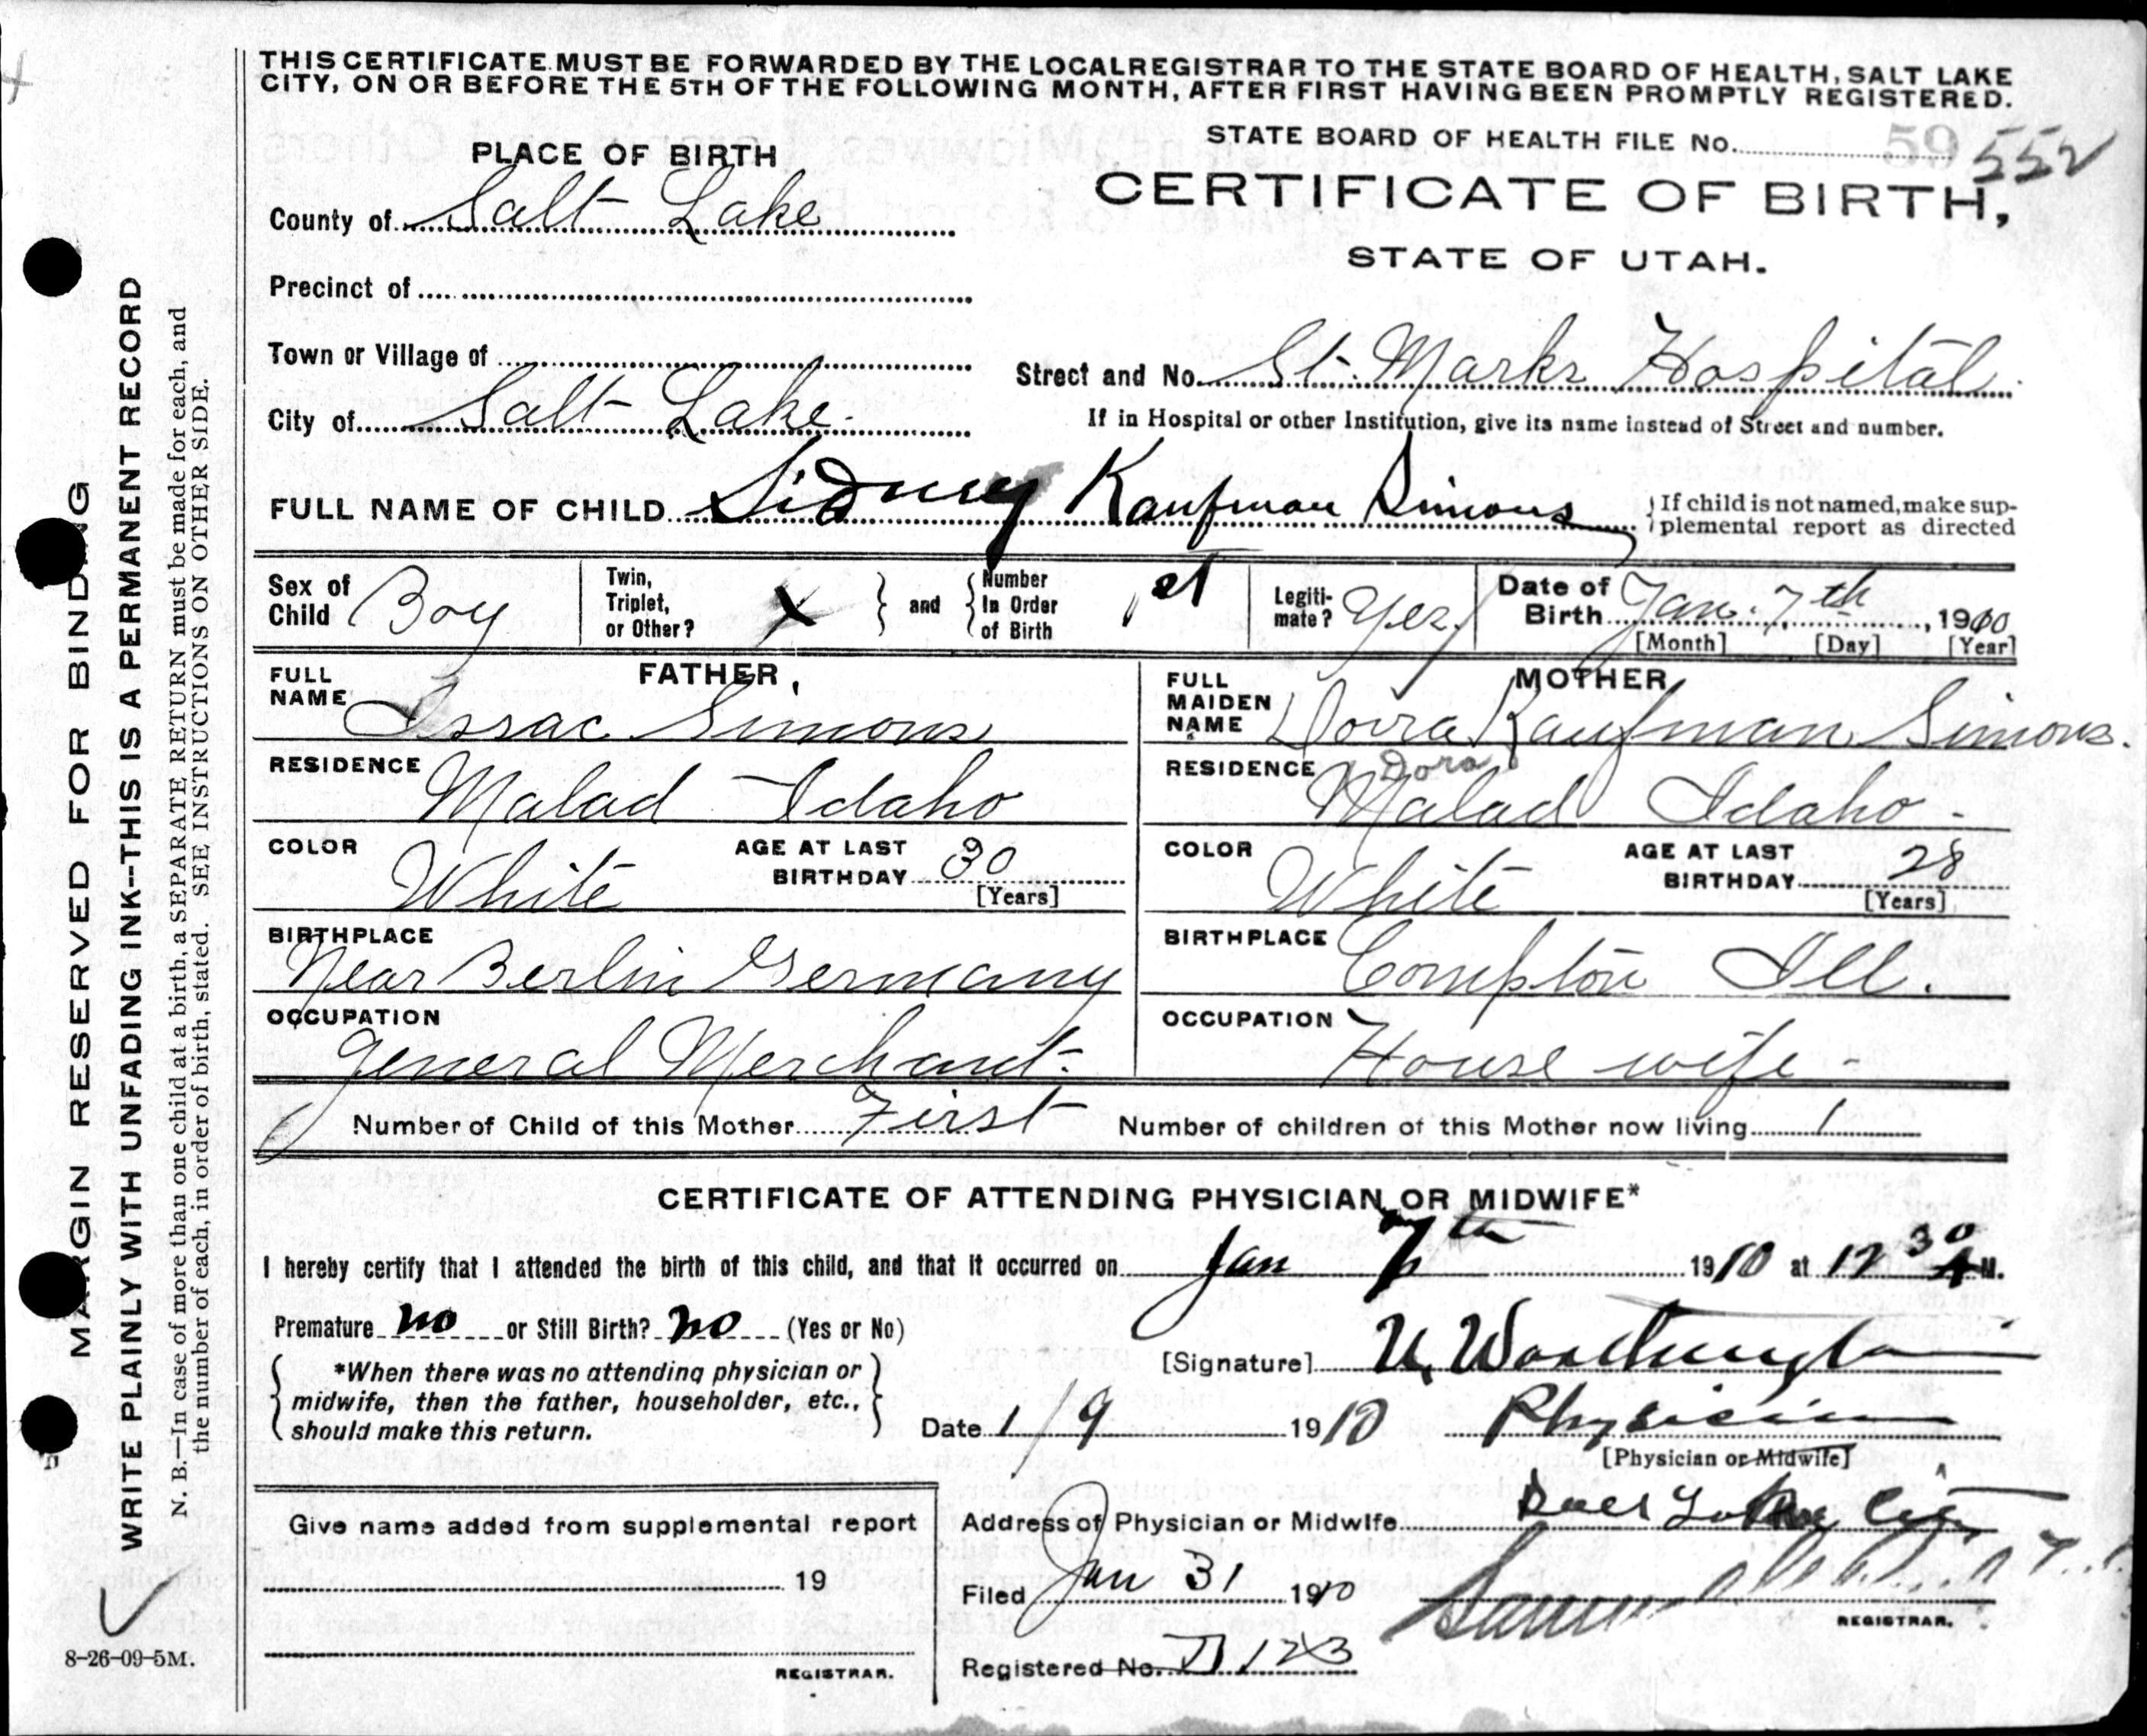 THIS CERTIFICATE MUST BE FORWARDED BY THE LOCAL REGISTRAR TO THE STATE BOARD OF HEALTH, SALT LAKE
CITY, ON OR BEFORE THE 5TH OF THE FOLLOWING MONTH, AFTER FIRST HAVING BEEN PROMPTLY REGISTERED.
STATE BOARD OF HEALTH FILE No. 59 552
CERTIFICATE OF BIRTH,
STATE OF UTAH.
PLACE OF BIRTH
County of Salt Lake
Precinct of
Town or Village of
City of Salt Lake
Street and No. St. Marks Hospital
If in Hospital or other Institution, give its name instead of Street and number.
FULL NAME OF CHILD Sidney Kaufman Simons
If child is not named, make sup-
plemental report as directed
Sex of Child Boy
Twin, Triplet, or Other? X and Number In Order of Birth 1st
Legiti-mate? Yes.
Date of Birth Jan. 7th, 1910
[Month] [Day] [Year]
FATHER
FULL NAME Issac Simons
RESIDENCE Malad Idaho
COLOR White AGE AT LAST BIRTHDAY 30 [Years]
BIRTHPLACE Near Berlin Germany
OCCUPATION General Merchant-
MOTHER
FULL MAIDEN NAME Dovra Kaufman Simons.
Dora
RESIDENCE Malad Idaho -
COLOR White AGE AT LAST BIRTHDAY 28 [Years]
BIRTHPLACE Compton Ill.
OCCUPATION House wife -
Number of Child of this Mother First Number of children of this Mother now living 1
CERTIFICATE OF ATTENDING PHYSICIAN OR MIDWIFE*
I hereby certify that I attended the birth of this child, and that it occurred on Jan 7th 1910 at 12 30 A M.
Premature no or Still Birth? no (Yes or No)
*When there was no attending physician or
midwife, then the father, householder, etc.,
should make this return.
[Signature] U. Worthington
Date 1/9 1910 Physician
[Physician or Midwife]
Give name added from supplemental report
19
REGISTRAR.
Address of Physician or Midwife Salt Lake City
Filed Jan 31 1910
REGISTRAR.
Registered No. 123
8-26-09-5M.
MARGIN RESERVED FOR BINDING
WRITE PLAINLY WITH UNFADING INK--THIS IS A PERMANENT RECORD
N. B.—In case of more than one child at a birth, a SEPARATE RETURN must be made for each, and
the number of each, in order of birth, stated. SEE INSTRUCTIONS ON OTHER SIDE.